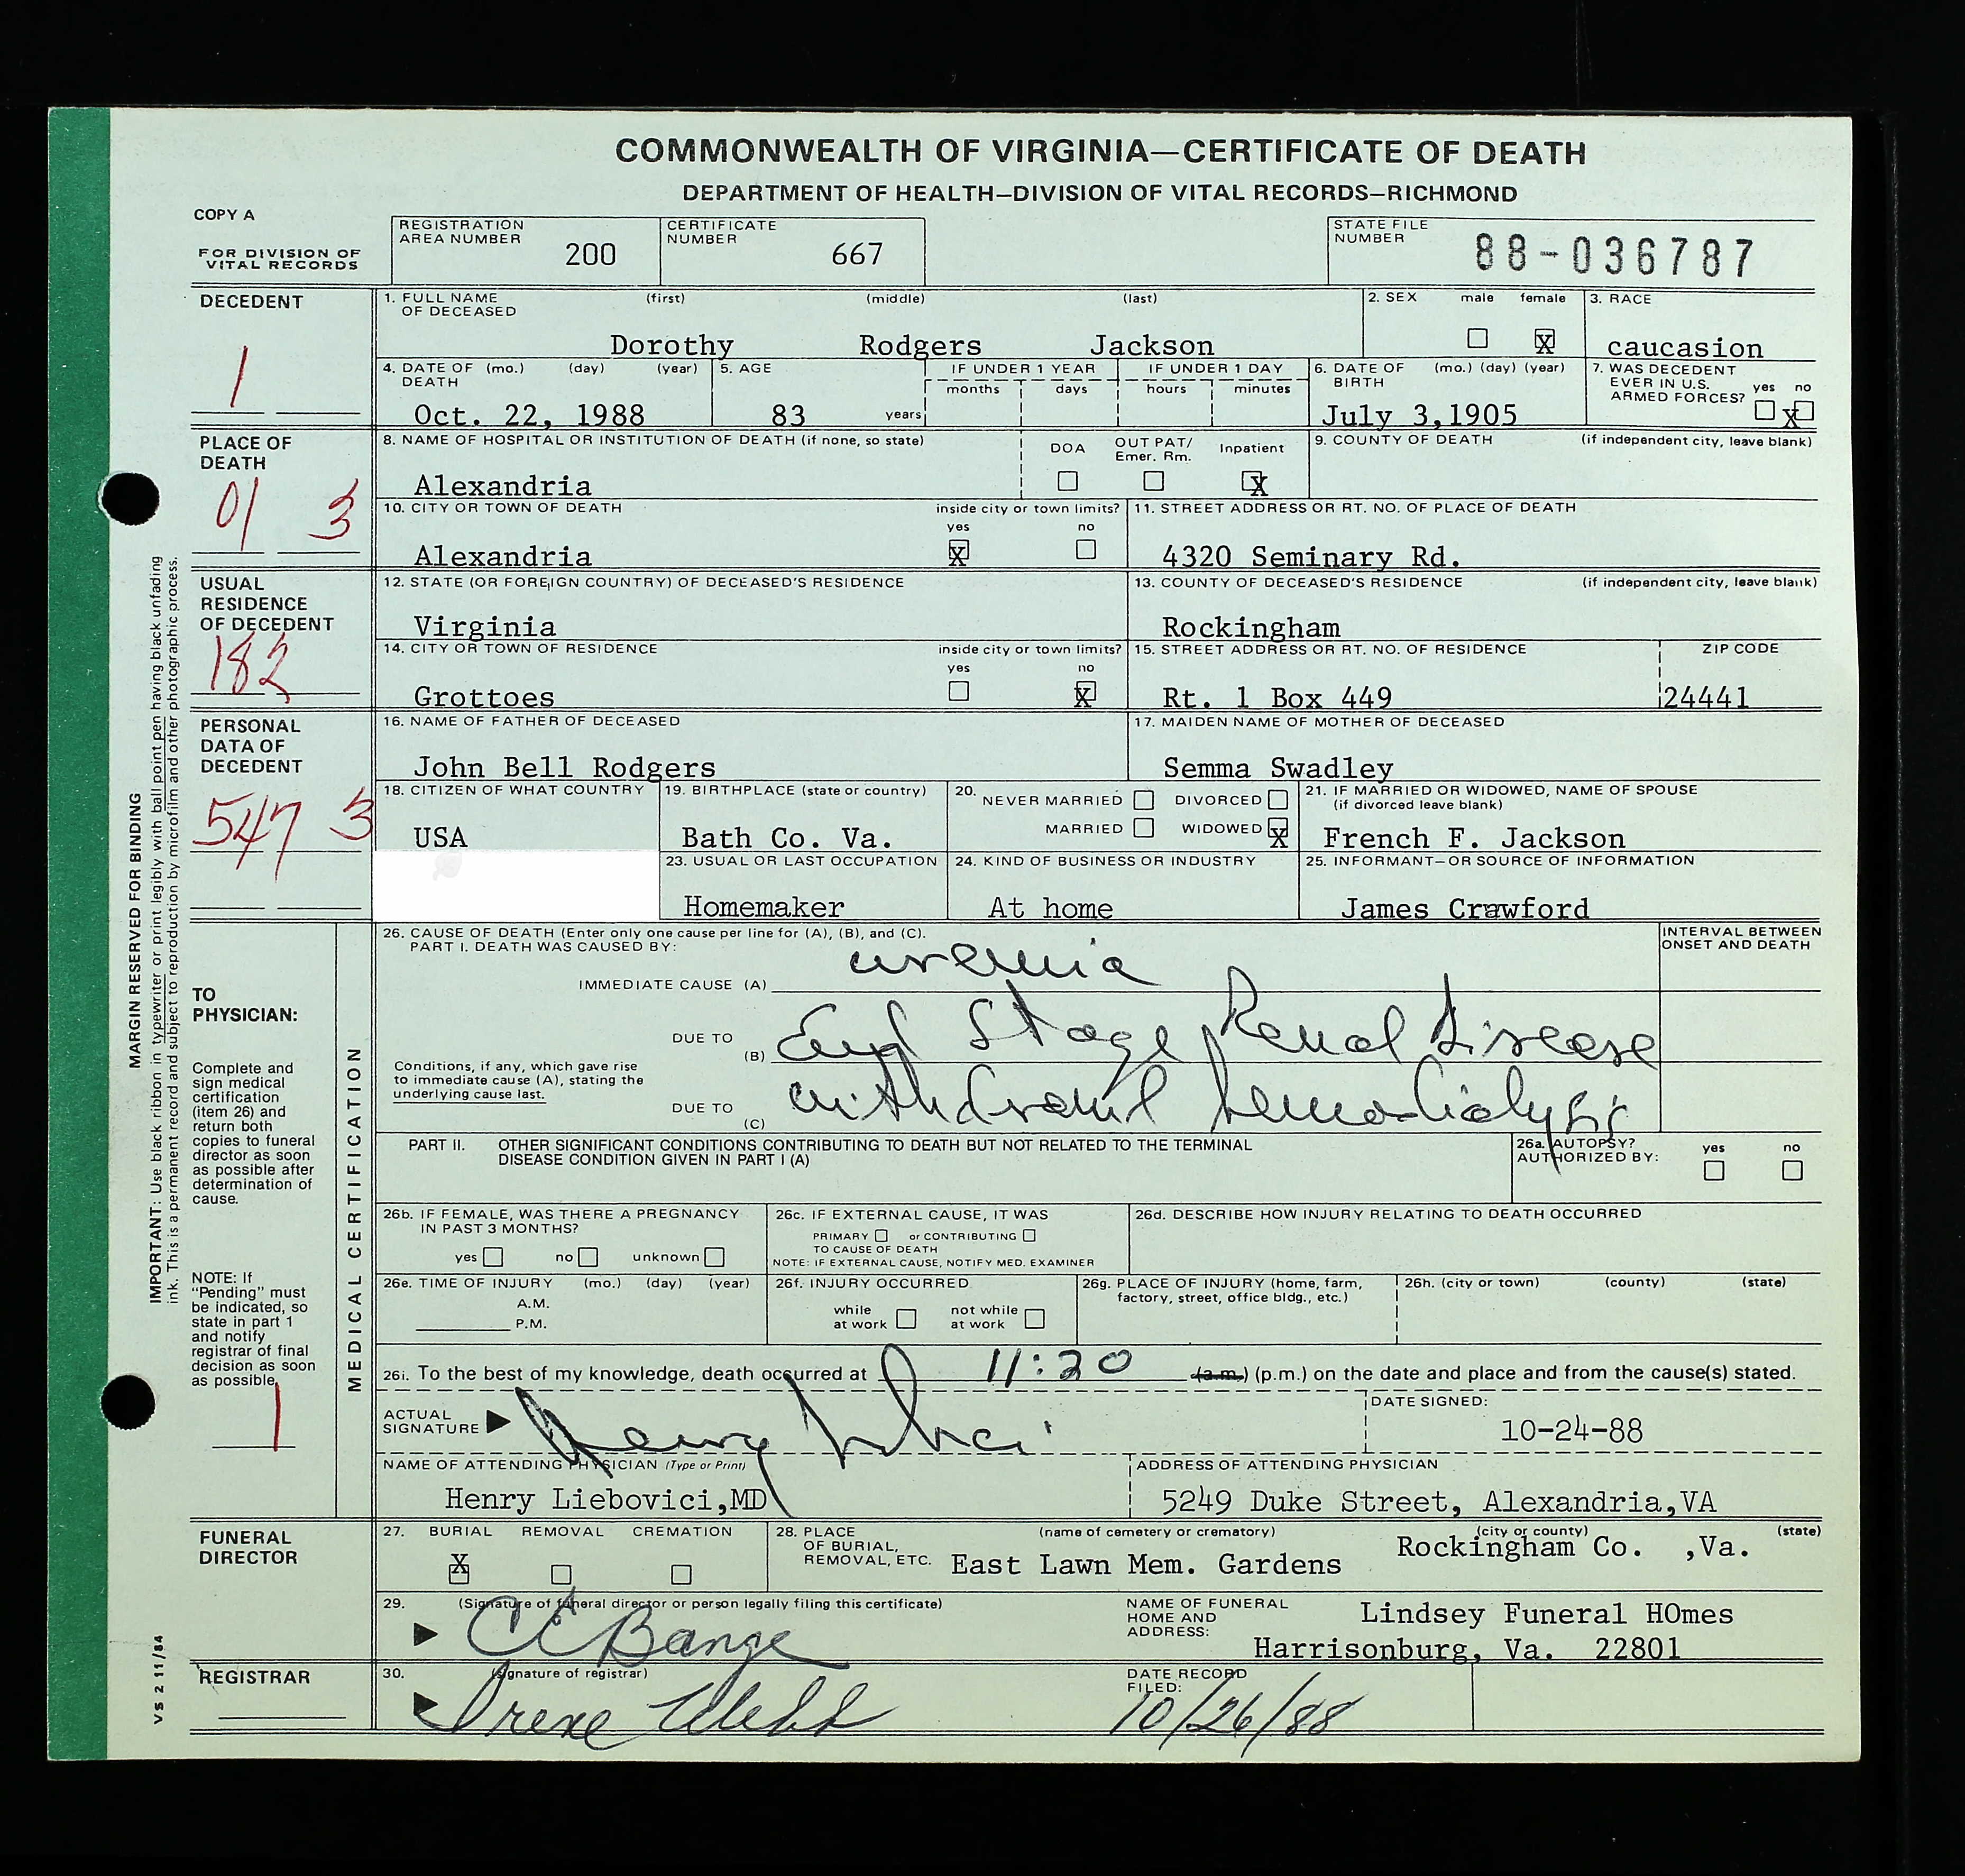 COMMONWEALTH OF VIRGINIA—CERTIFICATE OF DEATH
DEPARTMENT OF HEALTH—DIVISION OF VITAL RECORDS—RICHMOND
COPY A
FOR DIVISION OF VITAL RECORDS
REGISTRATION AREA NUMBER 200
CERTIFICATE NUMBER 667
STATE FILE NUMBER 88-036787
DECEDENT
1
1. FULL NAME OF DECEASED (first) (middle) (last)
Dorothy Rodgers Jackson
2. SEX male female X
3. RACE
caucasion
4. DATE OF DEATH (mo.) (day) (year)
Oct. 22, 1988
5. AGE
83 years
IF UNDER 1 YEAR months days
IF UNDER 1 DAY hours minutes
6. DATE OF BIRTH (mo.) (day) (year)
July 3,1905
7. WAS DECEDENT EVER IN U.S. ARMED FORCES? yes no X
PLACE OF DEATH
01 3
8. NAME OF HOSPITAL OR INSTITUTION OF DEATH (if none, so state)
Alexandria
DOA OUT PAT/ Emer. Rm. Inpatient X
9. COUNTY OF DEATH (if independent city, leave blank)
10. CITY OR TOWN OF DEATH inside city or town limits? yes no
Alexandria X
11. STREET ADDRESS OR RT. NO. OF PLACE OF DEATH
4320 Seminary Rd.
USUAL RESIDENCE OF DECEDENT
182
12. STATE (OR FOREIGN COUNTRY) OF DECEASED'S RESIDENCE
Virginia
13. COUNTY OF DECEASED'S RESIDENCE (if independent city, leave blank)
Rockingham
14. CITY OR TOWN OF RESIDENCE inside city or town limits? yes no
Grottoes X
15. STREET ADDRESS OR RT. NO. OF RESIDENCE ZIP CODE
Rt. 1 Box 449 24441
PERSONAL DATA OF DECEDENT
547 3
16. NAME OF FATHER OF DECEASED
John Bell Rodgers
17. MAIDEN NAME OF MOTHER OF DECEASED
Semma Swadley
18. CITIZEN OF WHAT COUNTRY
USA
19. BIRTHPLACE (state or country)
Bath Co. Va.
20. NEVER MARRIED DIVORCED
MARRIED WIDOWED X
21. IF MARRIED OR WIDOWED, NAME OF SPOUSE (if divorced leave blank)
French F. Jackson
23. USUAL OR LAST OCCUPATION
Homemaker
24. KIND OF BUSINESS OR INDUSTRY
At home
25. INFORMANT—OR SOURCE OF INFORMATION
James Crawford
MARGIN RESERVED FOR BINDING
IMPORTANT: Use black ribbon in typewriter or print legibly with ball point pen having black unfading
ink. This is a permanent record and subject to reproduction by microfilm and other photographic process.
VS 2 11/84
TO PHYSICIAN:
Complete and
sign medical
certification
(item 26) and
return both
copies to funeral
director as soon
as possible after
determination of
cause.
NOTE: If
"Pending" must
be indicated, so
state in part 1
and notify
registrar of final
decision as soon
as possible.
1
MEDICAL CERTIFICATION
26. CAUSE OF DEATH (Enter only one cause per line for (A), (B), and (C).
PART I. DEATH WAS CAUSED BY:
INTERVAL BETWEEN ONSET AND DEATH
IMMEDIATE CAUSE (A) uremia
DUE TO (B) End Stage Renal Disease
Conditions, if any, which gave rise
to immediate cause (A), stating the
underlying cause last.
DUE TO (C) withdrawl hemodialysis
PART II. OTHER SIGNIFICANT CONDITIONS CONTRIBUTING TO DEATH BUT NOT RELATED TO THE TERMINAL
DISEASE CONDITION GIVEN IN PART I (A)
26a. AUTOPSY? AUTHORIZED BY: yes no
26b. IF FEMALE, WAS THERE A PREGNANCY IN PAST 3 MONTHS?
yes no unknown
26c. IF EXTERNAL CAUSE, IT WAS
PRIMARY or CONTRIBUTING
TO CAUSE OF DEATH
NOTE: IF EXTERNAL CAUSE, NOTIFY MED. EXAMINER
26d. DESCRIBE HOW INJURY RELATING TO DEATH OCCURRED
26e. TIME OF INJURY (mo.) (day) (year)
A.M.
P.M.
26f. INJURY OCCURRED
while at work not while at work
26g. PLACE OF INJURY (home, farm, factory, street, office bldg., etc.)
26h. (city or town) (county) (state)
26i. To the best of my knowledge, death occurred at 11:20 (a.m.) (p.m.) on the date and place and from the cause(s) stated.
ACTUAL SIGNATURE Henry
DATE SIGNED:
10-24-88
NAME OF ATTENDING PHYSICIAN (Type or Print)
Henry Liebovici,MD
ADDRESS OF ATTENDING PHYSICIAN
5249 Duke Street, Alexandria,VA
FUNERAL DIRECTOR
27. BURIAL REMOVAL CREMATION
X
28. PLACE OF BURIAL, REMOVAL, ETC. (name of cemetery or crematory) (city or county) (state)
East Lawn Mem. Gardens Rockingham Co. ,Va.
29. (Signature of funeral director or person legally filing this certificate)
CE Bange
NAME OF FUNERAL HOME AND ADDRESS:
Lindsey Funeral HOmes
Harrisonburg, Va. 22801
REGISTRAR
30. (Signature of registrar)
Irene Webb
DATE RECORD FILED:
10/26/88